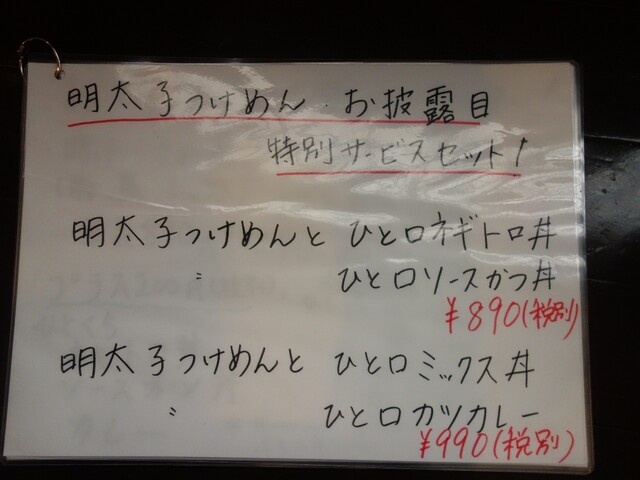 明太子つけめん・お披露目
特別サービスセット!
明太子つけめんと ひと口ネギトロ丼
〃 ひと口ソースかつ丼
¥890(税別)
明太子つけめんと ひと口ミックス丼
〃 ひと口カツカレー
¥990(税別)